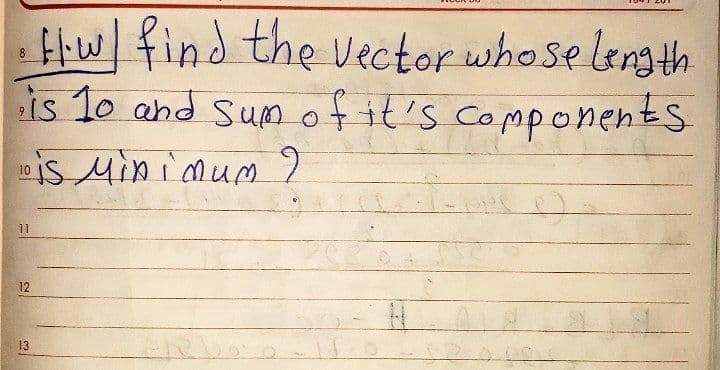 H.W| find the vector whose length
8
is 10 and sum of it's components
9
is Minimum ?
10
11
12
13